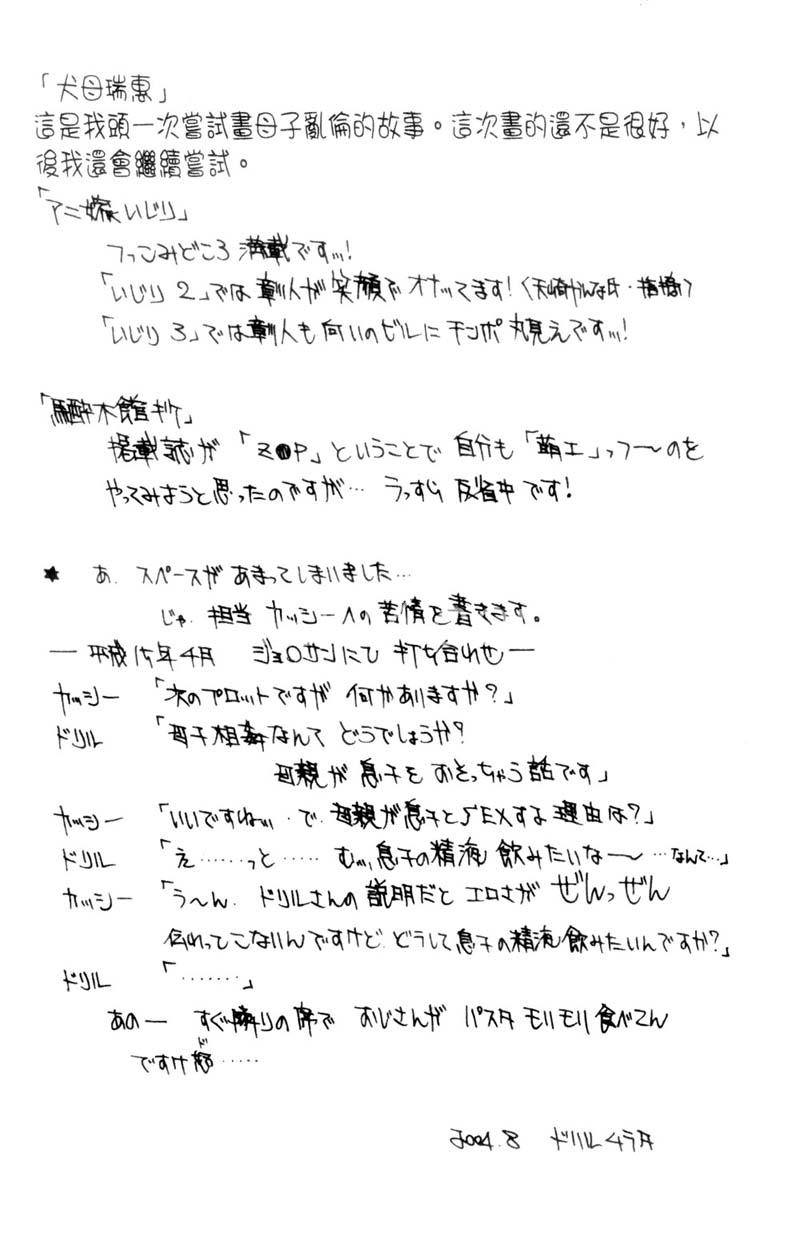 「犬母瑞惠」
這是我頭一次嘗試畫母子亂倫的故事。這次畫的還不是很好，以
後我還會繼續嘗試。
「アニ嫁いじり」
つっこみどころ満載ですッ!
「いじり2」では彰人が笑顔でオナってます!
「いじり3」では彰人も向いのビルにチンポ丸見えですッ!
「馬酔木館
掲載誌が「Z●P」ということで自分も「萌エ」っつ〜のを
やってみようと思ったのですが… うっすら反省中です!
★ あ、スペースがあまってしまいました…
じゃ、担当カッシーへの苦情を書きます。
― 平成15年4月 ジョ○サンにて 打ち合わせ ―
カッシー 「次のプロットですが何かありますか?」
ドリル 「母子相姦なんてどうでしょうか?
母親が息子をおそっちゃう話です」
カッシー 「いいですねッ、で、母親が息子とSEXする理由は?」
ドリル 「え……っと…… むッ、息子の精液飲みたいな〜 …なんて…」
カッシー 「う〜ん、ドリルさんの説明だとエロさがぜんっぜん
伝わってこないんですけど、どうして息子の精液飲みたいんですか?」
ドリル 「……」
あの― すぐ隣りの席でおじさんがパスタモリモリ食べてん
ですけ怒……
ド
2004.8 ドリルムラタ